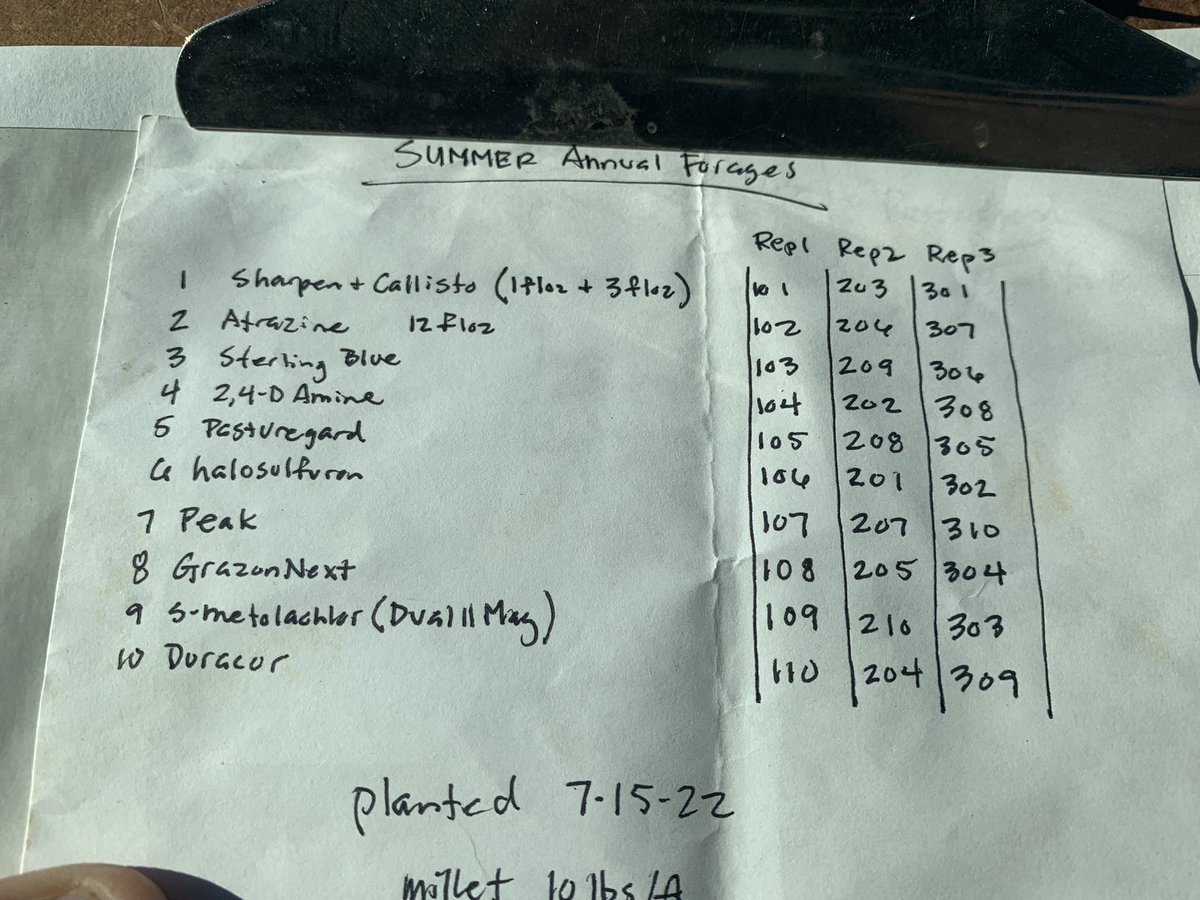 SUMMER Annual Forages
Rep1 Rep2 Rep3
1 Sharpen + Callisto (1floz + 3floz) 101 203 301
2 Atrazine 12 floz 102 206 307
3 Sterling Blue 103 209 306
4 2,4-D Amine 104 202 308
5 Pasturegard 105 208 305
6 halosulfuron 106 201 302
7 Peak 107 207 310
8 GrazonNext 108 205 304
9 S-metolachlor (Dual II Mag) 109 210 303
10 Duracor 110 204 309
planted 7-15-22
millet 10 lbs/A